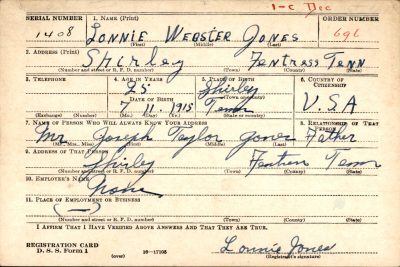 1-C Dec
SERIAL NUMBER 1. NAME (Print) ORDER NUMBER
1408 LONNIE WEBSTER JONES 696
(First) (Middle) (Last)
2. ADDRESS (Print)
Shirley Fentress Tenn
(Number and street or R. F. D. number) (Town) (County) (State)
3. TELEPHONE 4. AGE IN YEARS 5. PLACE OF BIRTH 6. COUNTRY OF CITIZENSHIP
25 Shirley
DATE OF BIRTH (Town or county)
7 11 1915 Tenn U.S.A
(Exchange) (Number) (Mo.) (Day) (Yr.) (State or country)
7. NAME OF PERSON WHO WILL ALWAYS KNOW YOUR ADDRESS 8. RELATIONSHIP OF THAT PERSON
Mr. Joseph Taylor Jones Father
(Mr., Mrs., Miss) (First) (Middle) (Last)
9. ADDRESS OF THAT PERSON
Shirley Fentress Tenn
(Number and street or R. F. D. number) (Town) (County) (State)
10. EMPLOYER'S NAME
None
11. PLACE OF EMPLOYMENT OR BUSINESS
(—)
(Number and street or R. F. D. number) (Town) (County) (State)
I AFFIRM THAT I HAVE VERIFIED ABOVE ANSWERS AND THAT THEY ARE TRUE.
REGISTRATION CARD Lonnie Jones
D. S. S. Form 1 (over) 16-17105 (Registrant's signature)